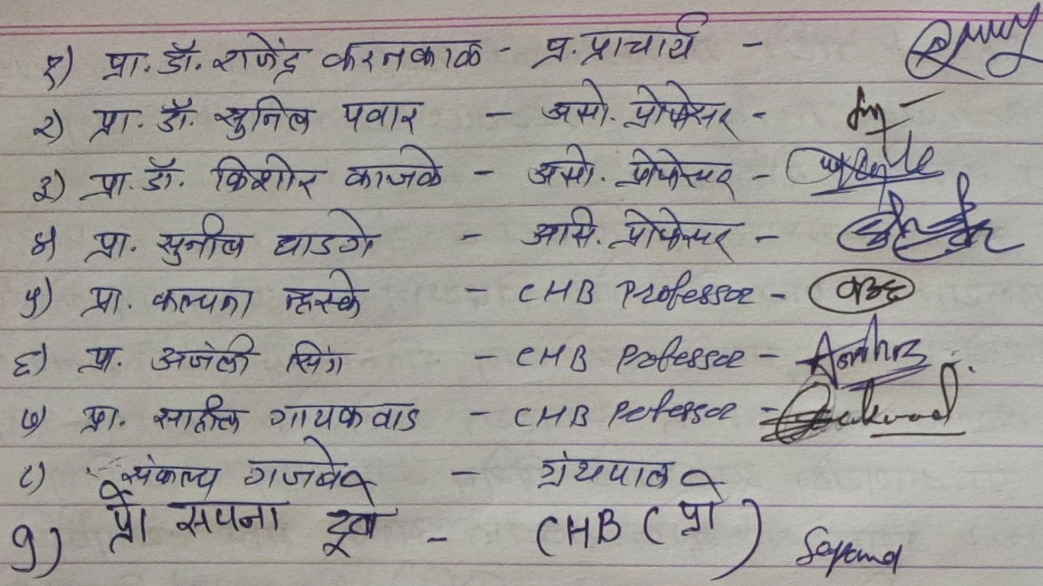 १) प्रा. डॉ. राजेंद्र करनकाळ - प्र. प्राचार्य -
२) प्रा. डॉ. सुनिल पवार - असो. प्रोफेसर -
३) प्रा. डॉ. किशोर काजळे - असो. प्रोफेसर -
४) प्रा. सुनील घाडगे - असि. प्रोफेसर -
५) प्रा. कल्पना म्हस्के - CHB Professor -
६) प्रा. अंजली सिंग - CHB Professor -
७) प्रा. साहील गायकवाड - CHB Peofessor -
८) संकल्प गजबे - ग्रंथपाल
9) प्रा सपना दूबे - CHB (प्रा) Sapana